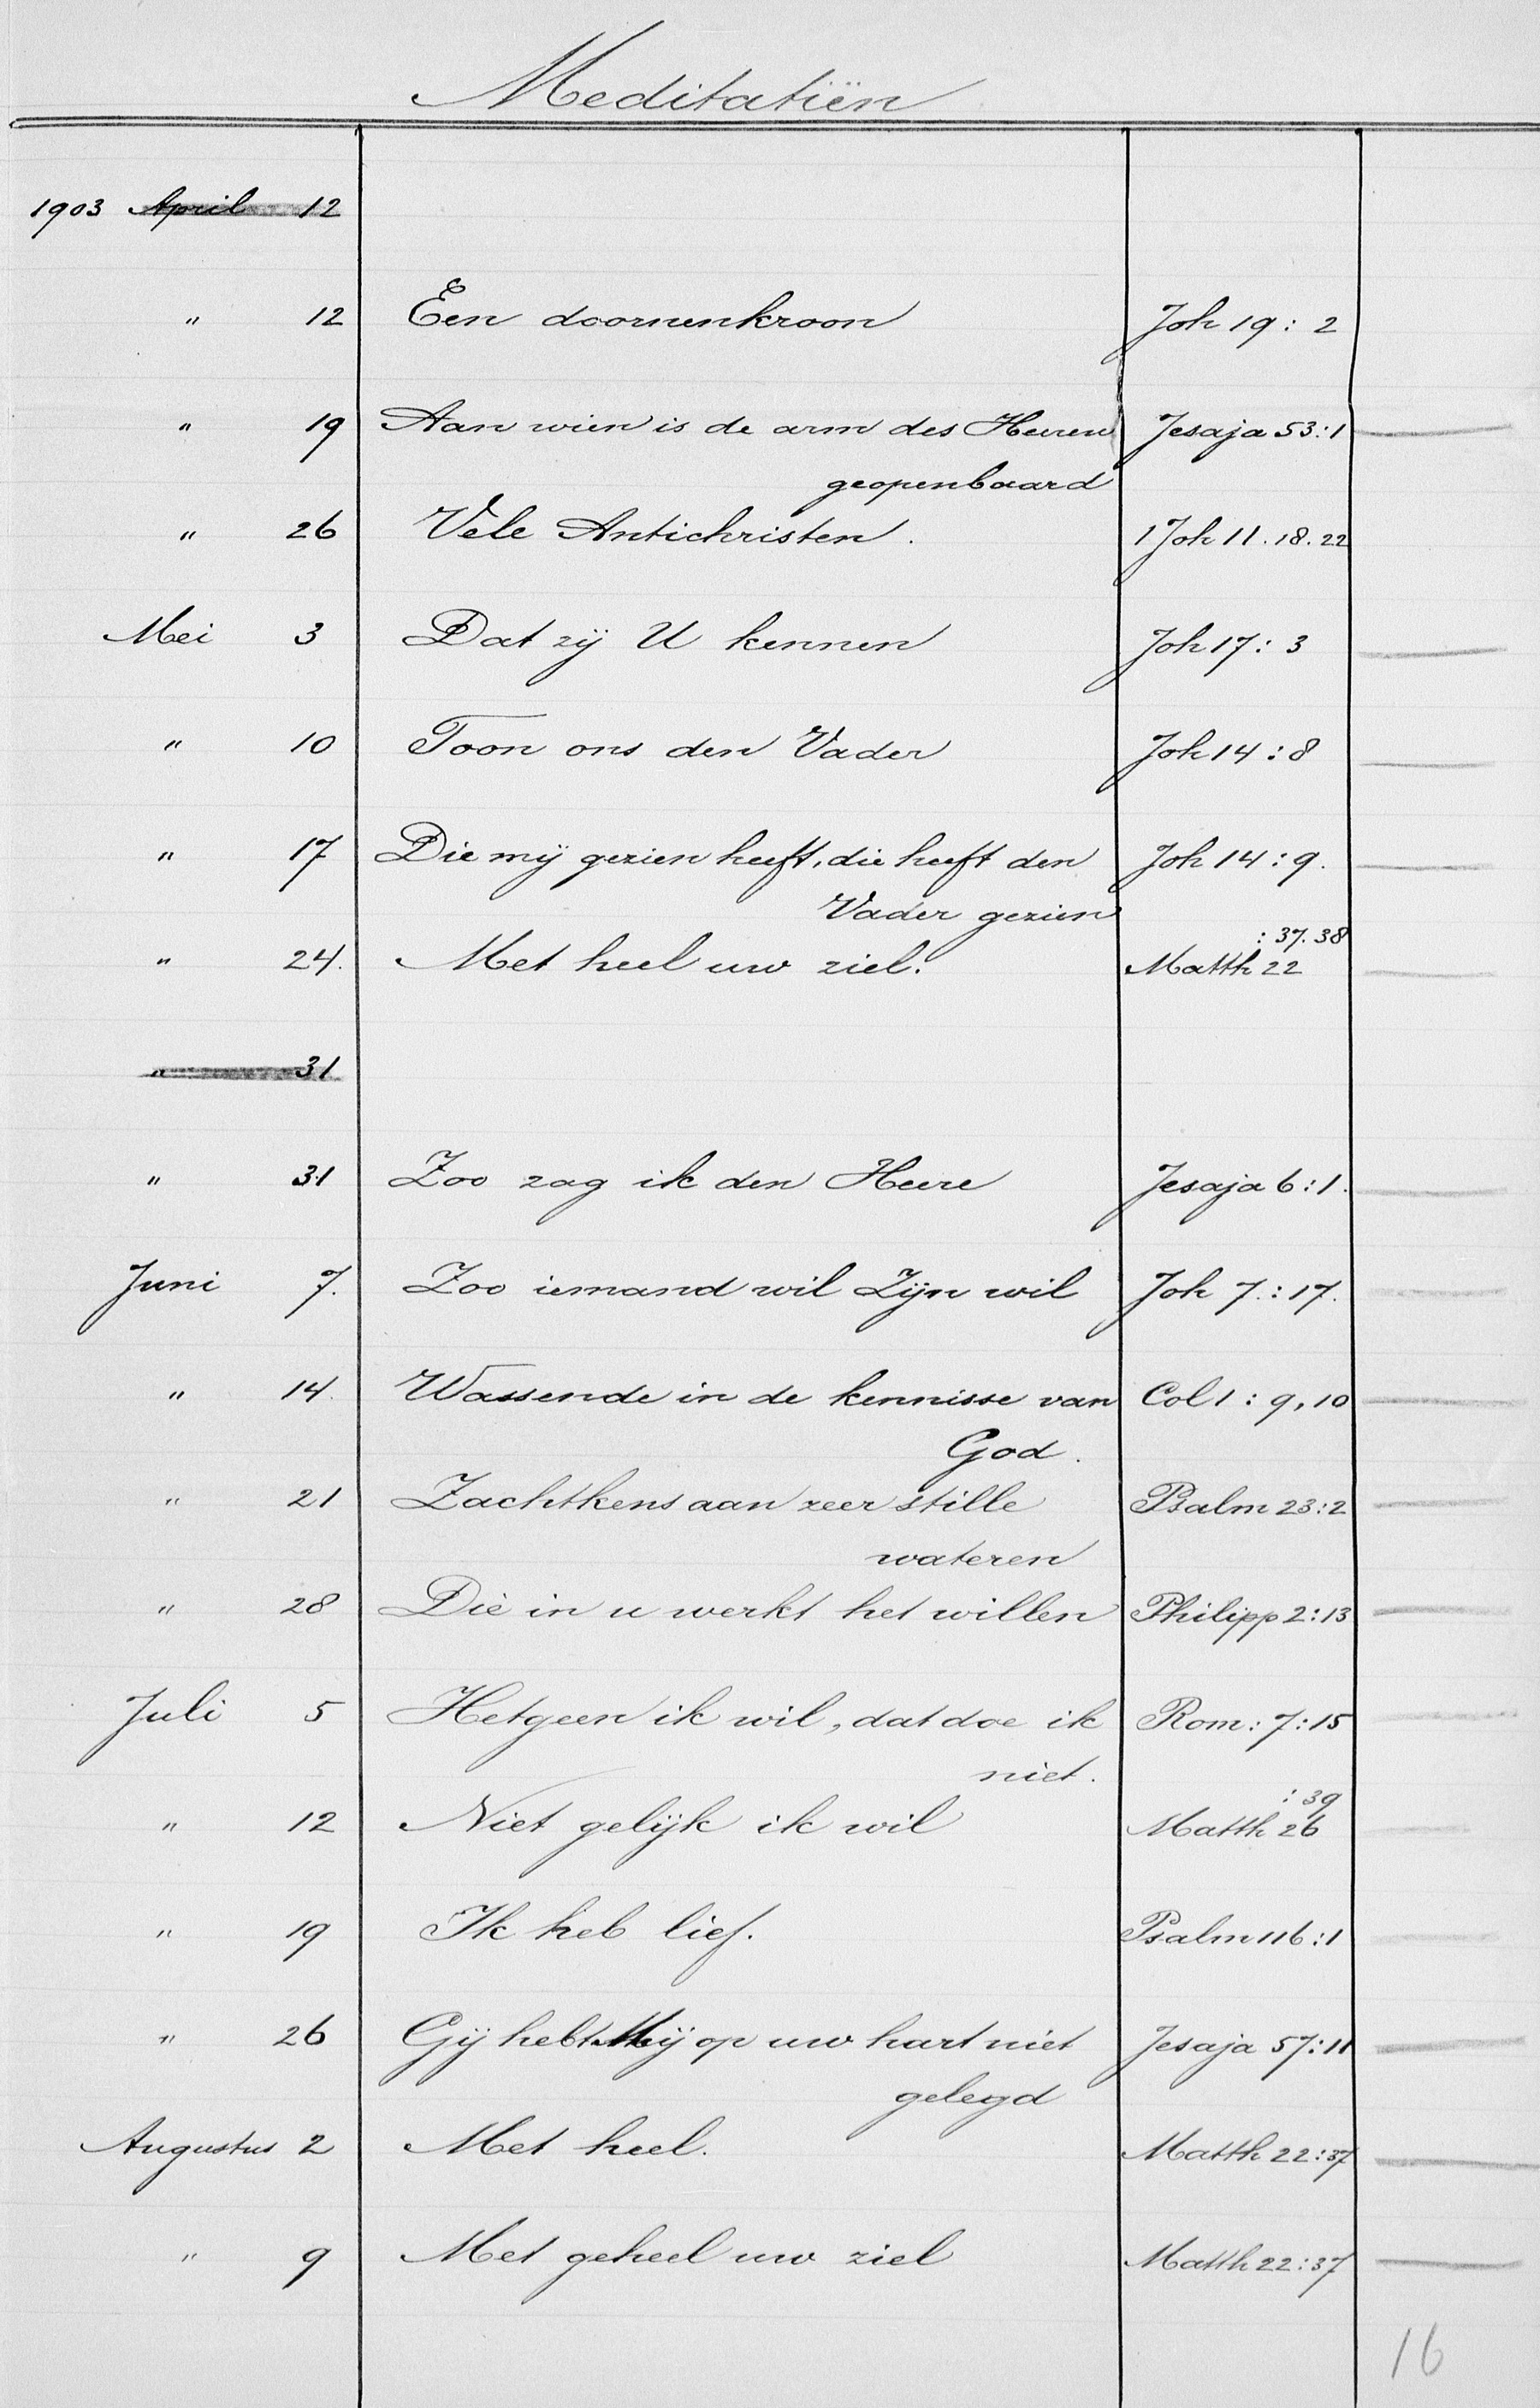 Meditatiën
1903 April 12
" 12 Een doornenkroon Joh 19: 2
" 19 Aan wien is de arm des Heeren Jesaja 53:1
geopenbaard
" 26 Vele Antichristen. 1 Joh 11.18.22
Mei 3 Dat zij U kennen Joh 17: 3
" 10 Toon ons den Vader Joh 14:8
" 17 Die mij gezien heeft, die heeft den Joh 14:9.
Vader gezien
:37.38
" 24. Met heel uw ziel. Matth 22
" 31
" 31 Zoo zag ik den Heere Jesaja 6:1.
Juni 7. Zoo iemand wil Zijn wil Joh 7.:17.
" 14. Wassende in de kennisse van Col 1: 9,10
God.
" 21 Zachtkens aan zeer stille Psalm 23:2
wateren
" 28 Die in u werkt het willen Philipp 2:13
Juli 5 Hetgeen ik wil, dat doe ik Rom: 7:15
niet.
:39
" 12 Niet gelijk ik wil Matth 26
" 19 Ik heb lief. Psalm 116:1
" 26 Gij hebt Mij op uw hart niet Jesaja 57:11
gelegd
Augustus 2 Met heel. Matth 22:37
" 9 Met geheel uw ziel Matth 22:37
16